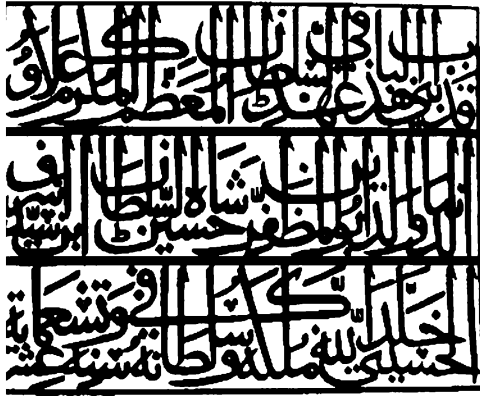 قد بني هذ الباب في عهد السلطان المعظم المكرم علاو
الدنيا والدين ابو المظفر حسين شاه السلطان ابن سيد اشرف
الحسيني خلد الله ملكه وسلطانه في سنه عشر وتسعماية